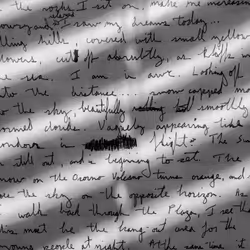 the rocks I sit on. make me increas
I saw my dreams today...
rolling hills covered with small yellow
flowers, cut off absurdly, as cliffs
the sea. I am in awe. Looking off
into the distance... snow capped mo
the sky, beautifully smoothly
formed clouds. Vaguely appearing like
in flight. The Sun
is still out, and is beginning to set. The
snow on the Osorno Volcano turns orange, and
the sky on the opposite horizon. As
walk back through the Plaza, I see th
this must be the hang out area for the
young people at night. At the same time